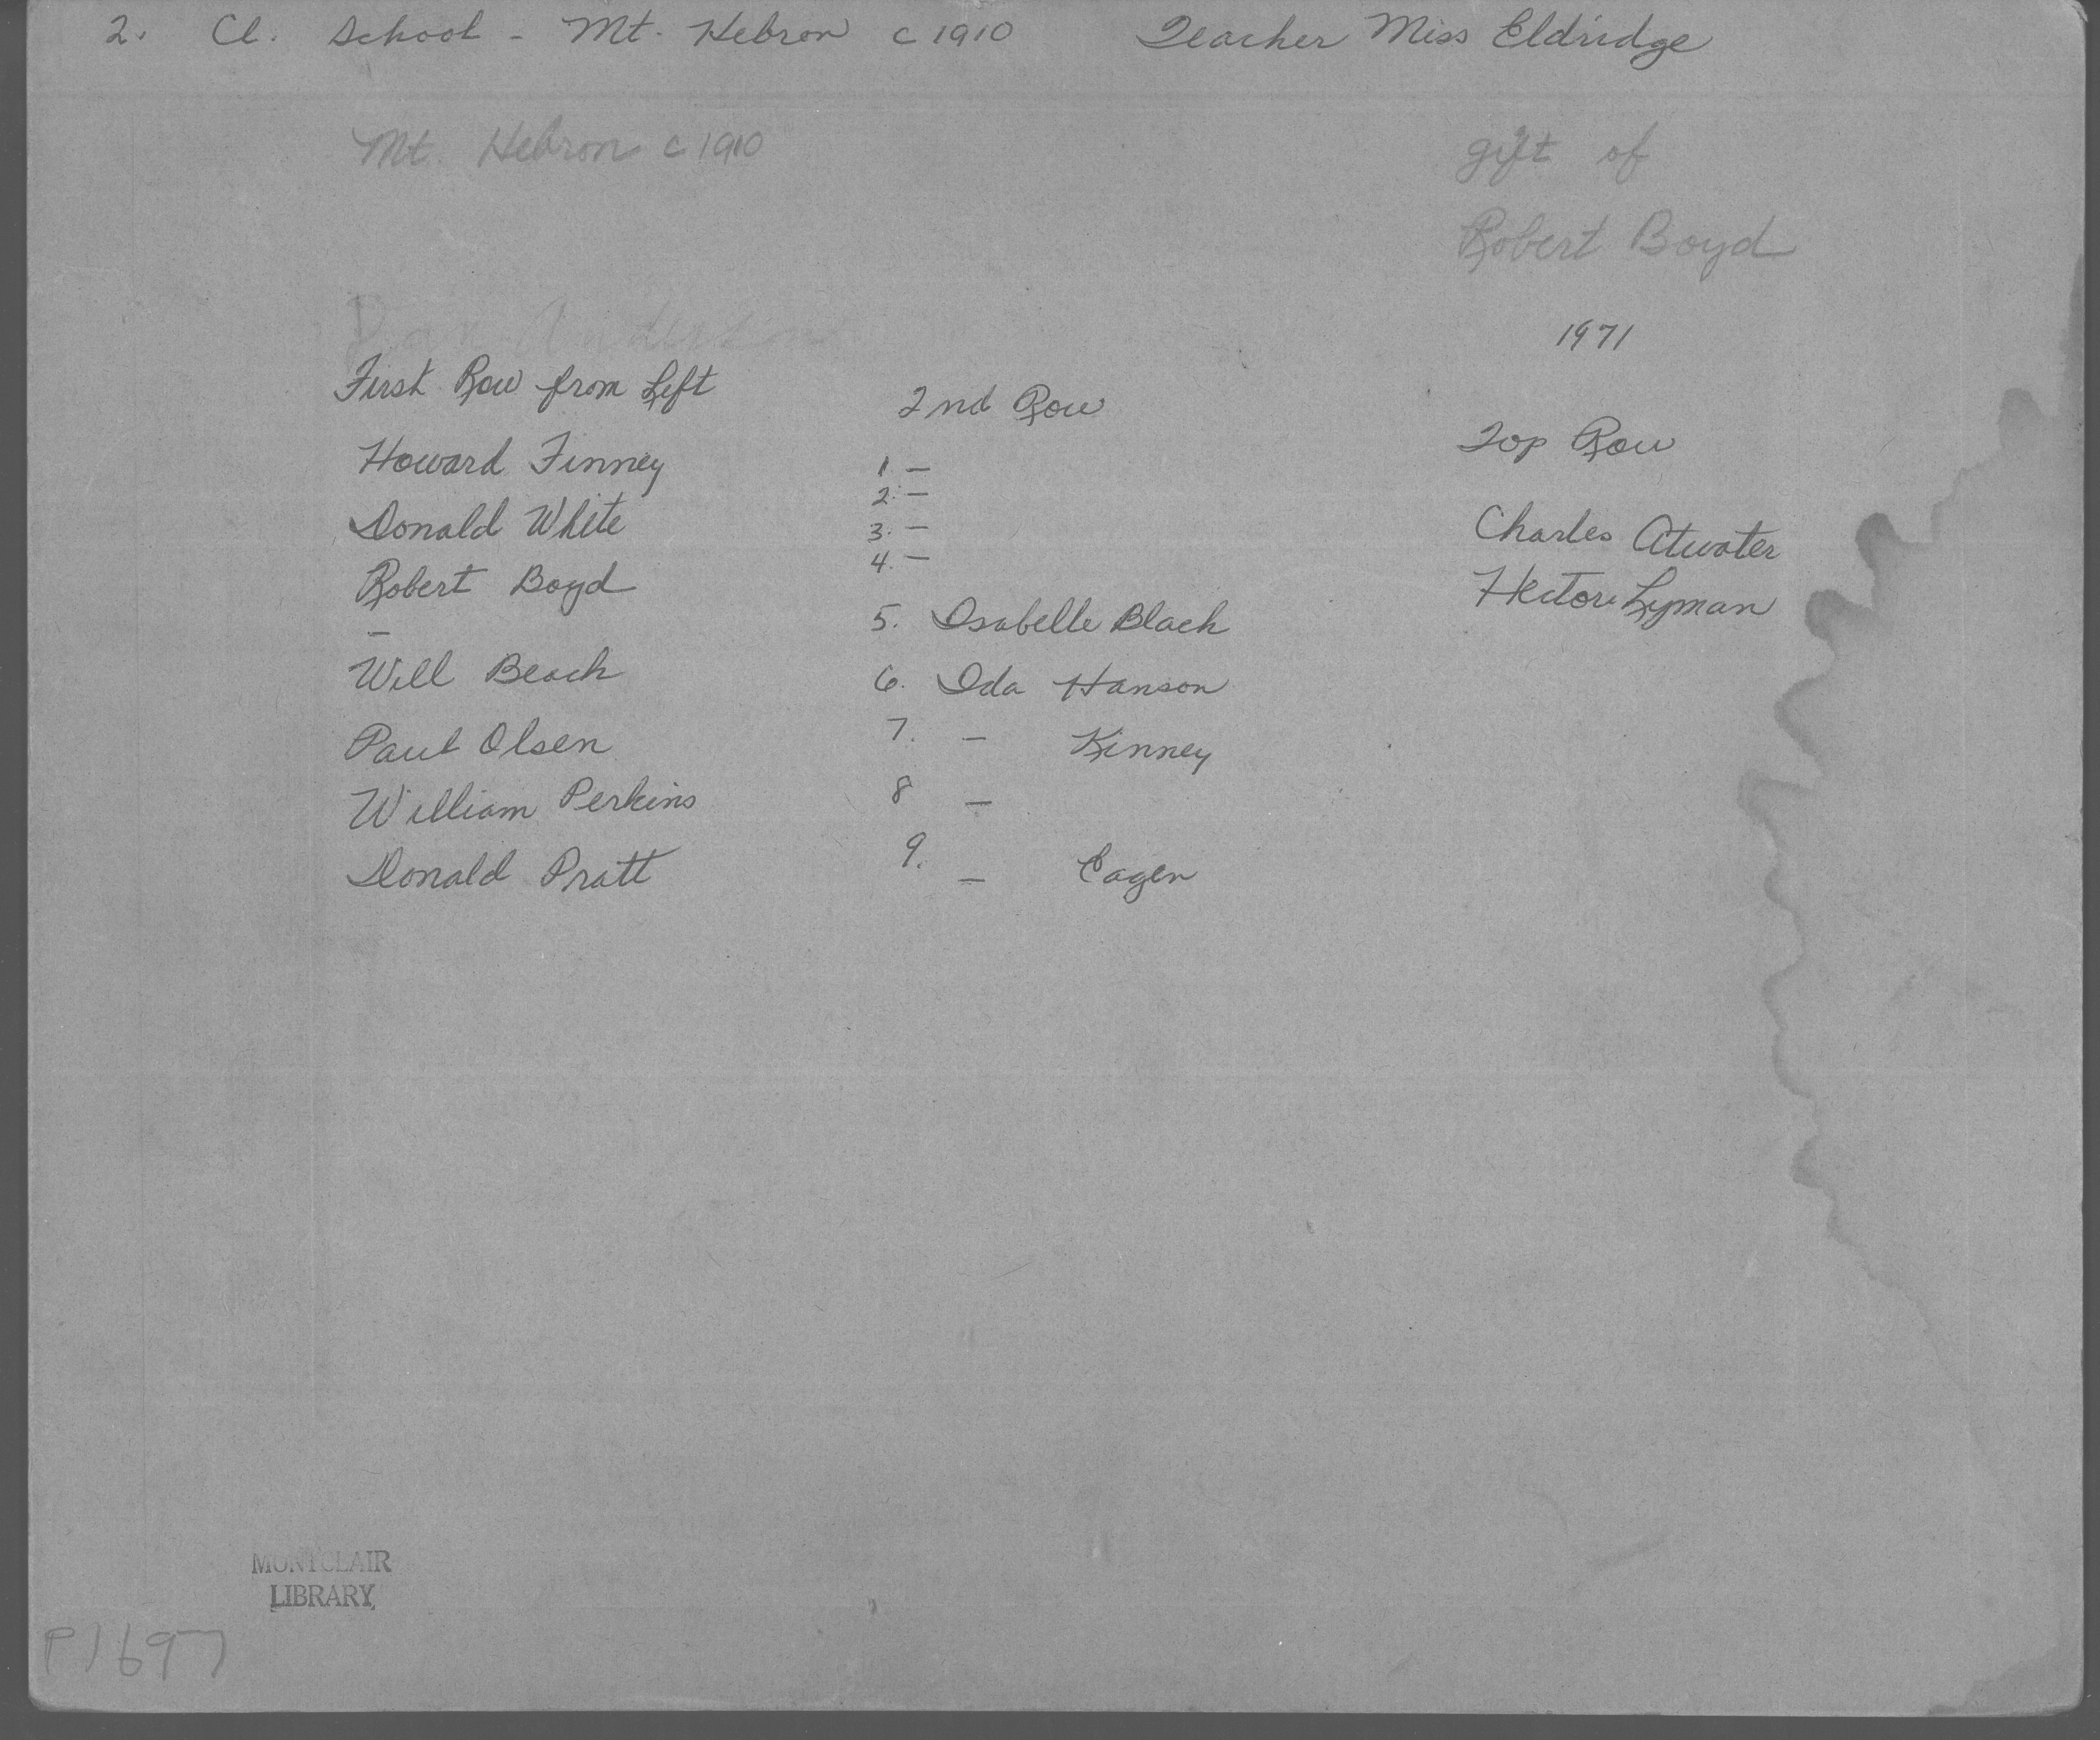 2. Cl. School - Mt. Hebron c 1910 Teacher Miss Eldridge
Mt. Hebron c 1910
gift of
Robert Boyd
1971
First Row from Left
Howard Finney
Donald White
Robert Boyd
–
Will Beach
Paul Olsen
William Perkins
Donald Pratt
2nd Row
1. –
2. –
3. –
4. –
5. Isabelle Black
6. Ida Hanson
7. – Kinney
8 –
9. – Eagen
Top Row
Charles Atwater
Hector Lyman
MONTCLAIR
LIBRARY
P1697